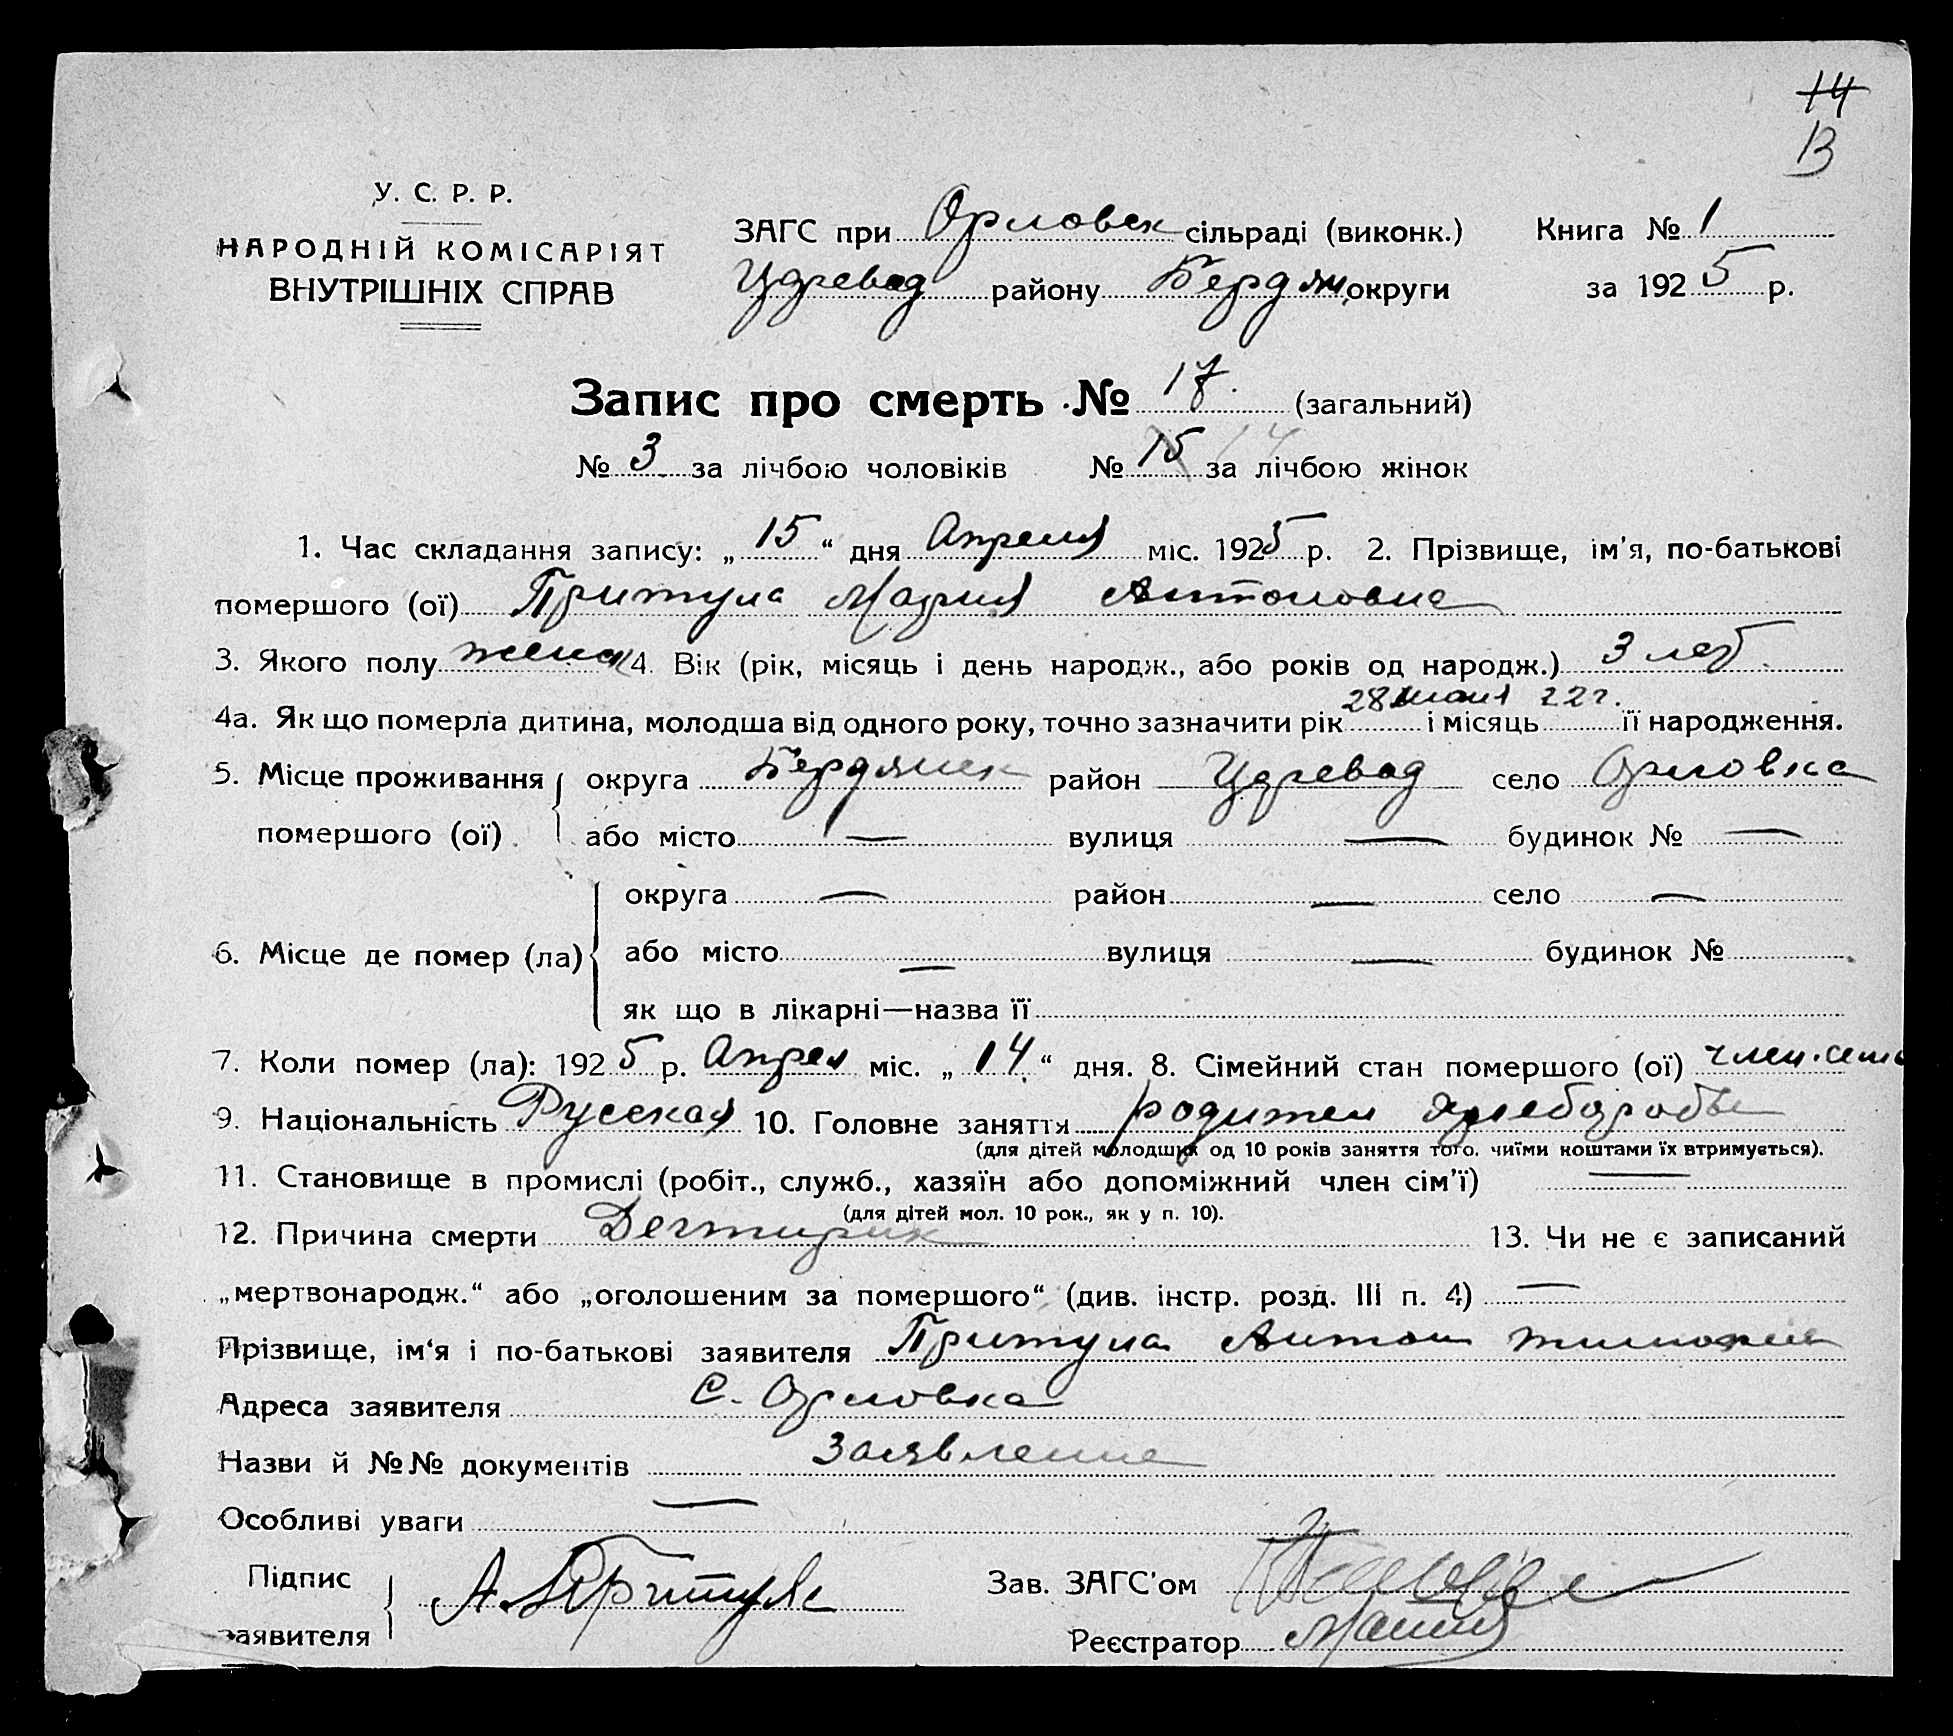 14
13
У. С. Р. Р.
НАРОДНІЙ КОМІСАРІЯТ
ВНУТРІШНІХ СПРАВ
ЗАГС при Орловск сільраді (виконк.) Книга № 1
Цдревод району Бердян округи за 1925 р.
Запис про смерть № 17. (загальний)
№ 3 за лічбою чоловіків № 15 14 за лічбою жінок
1. Час складання запису: „15“ дня Апреля міс. 1925 р. 2. Прізвище, ім'я, по-батькові
помершого (ої) Притула Мария Антоновна
3. Якого полу женск 4. Вік (рік, місяць і день народж., або років од народж.) 3 лет
4а. Як що померла дитина, молодша від одного року, точно зазначити рік 28 і місяць 22 г. її народження.
5. Місце проживання округа Бердянск район Цдревод село Орловка
помершого (ої) або місто — вулиця — будинок № —
округа — район — село —
6. Місце де помер (ла) або місто — вулиця — будинок №
як що в лікарні—назва її
7. Коли помер (ла): 1925 р. Апрел міс. „14“ дня. 8. Сімейний стан помершого (ої) член. семь
9. Національність Русская 10. Головне заняття родител хлебороб
(для дітей молодших од 10 років заняття того, чиїми коштами їх втримується).
11. Становище в промислі (робіт., служб., хазяїн або допоміжний член сім'ї) —
(для дітей мол. 10 рок., як у п. 10).
12. Причина смерти Дегтирик 13. Чи не є записаний
„мертвонародж.“ або „оголошеним за помершого“ (див. інстр. розд. III п. 4) —
Прізвище, ім'я і по-батькові заявителя Притула Антон
Адреса заявителя с. Орловка
Назви й №№ документів Заявление
Особливі уваги —
Підпис А. Притула Зав. ЗАГС'ом
заявителя Реєстратор